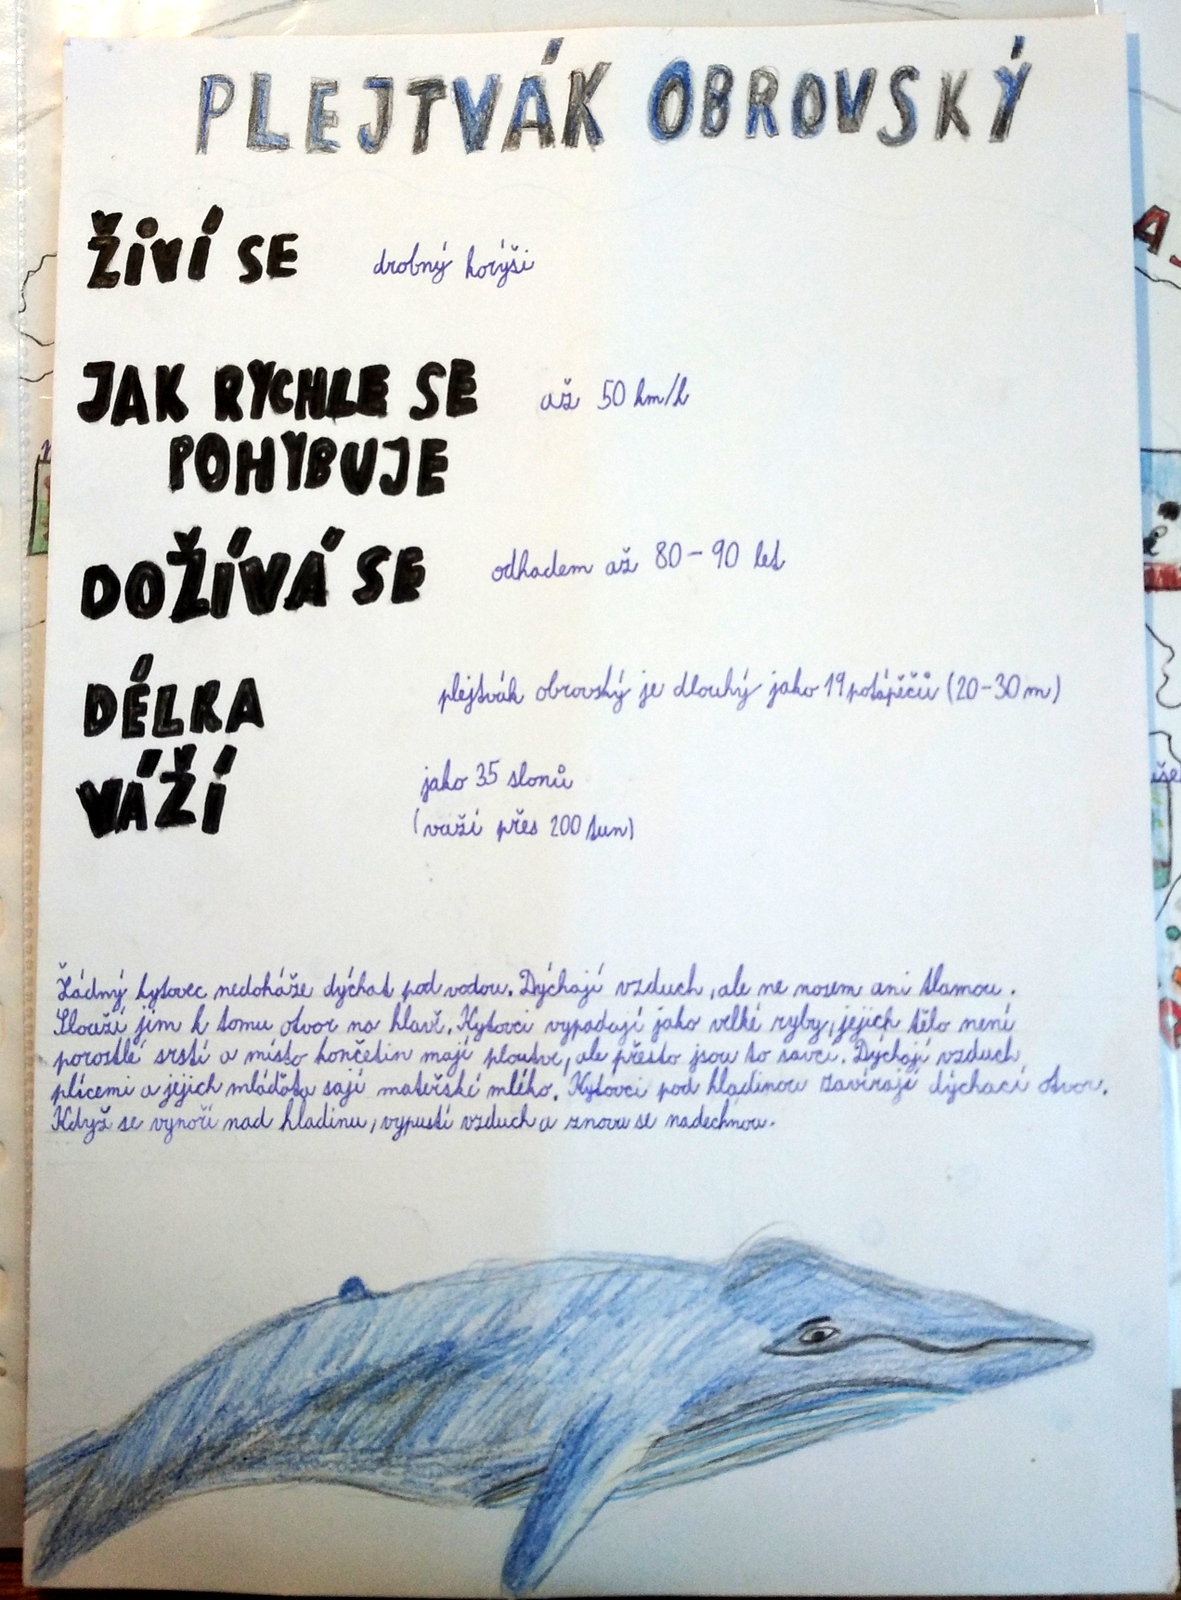 PLEJTVÁK OBROVSKÝ
ŽIVÍ SE drobný korýši
JAK RYCHLE SE až 50 km/h
POHYBUJE
DOŽÍVÁ SE odhadem až 80-90 let
DÉLKA plejtvák obrovský je dlouhý jako 19 potápěčů (20-30 m)
VÁŽÍ jako 35 slonů
(váží přes 200 tun)
Žádný kytovec nedokáže dýchat pod vodou. Dýchají vzduch, ale ne nosem ani tlamou.
Slouží jim k tomu otvor na hlavě. Kytovci vypadají jako velké ryby, jejich tělo není
porostlé srstí a místo končetin mají ploutve, ale přesto jsou to savci. Dýchají vzduch
plícemi a jejich mláďata sají mateřské mléko. Kytovci pod hladinou zavírají dýchací otvor.
Když se vynoří nad hladinu, vypustí vzduch a znovu se nadechnou.
A,